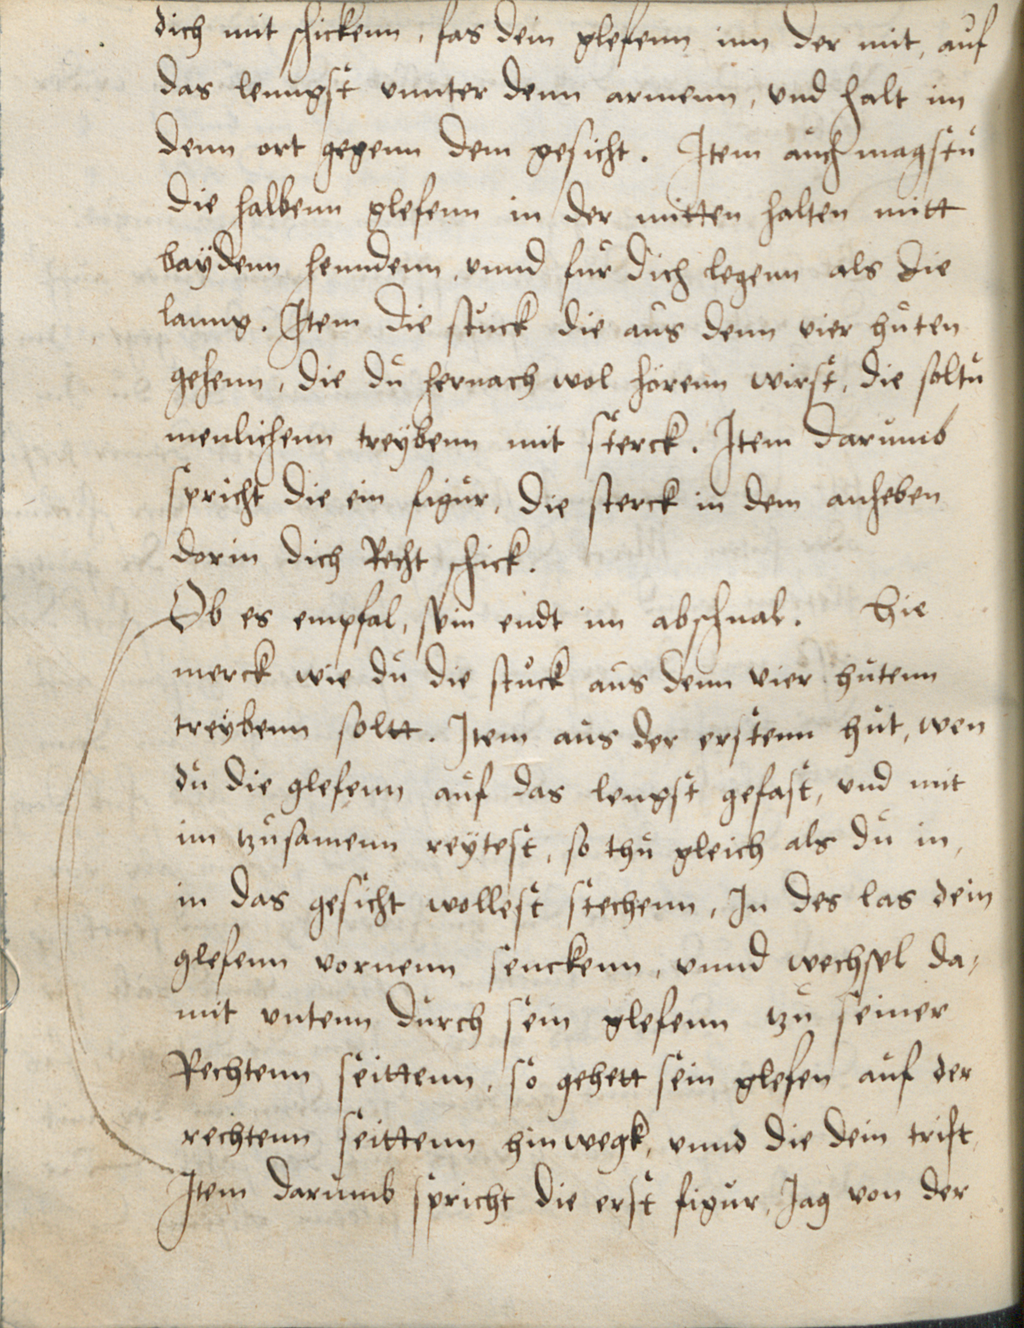 dich mit schickenn, fas dein glefenn inn der mit, auf
das lenngst vnnter denn armenn, vnd halt im
denn ort gegenn dem gesicht. Item auch magstu
die halbenn glefenn in der mitten halten mitt
baÿdenn henndenn, vnnd fur dich legenn als die
lanng. Item die stuck die aus denn vier huten
gehenn, die du hernach wol horenn wirst, die soltu
menlichenn treÿbenn mit sterck. Item darumb
spricht die ein figur, die sterck in dem anheben
dorin dich Recht schick.
Ob es empfal, sein endt im abschnal. Hie
merck wie du die stuck aus denn vier hutenn
treÿbenn soltt. Item aus der erstenn hut, wen
du die glefenn auf das lengst gefast, vnd mit
im tzusamenn reÿtest, so thu gleich als du in,
in das gesicht wollest stechenn, In des las dein
glefenn vornenn senckenn, vnnd wechsel da,
mit vntenn durch sein glefenn tzu seiner
Rechtenn seittenn, so gehett sein glefen auf der
rechtenn seittenn hinwegk, vnnd die dein trift,
Item darumb spricht die erst figur, Jag von der